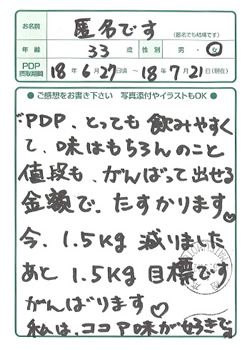 お名前
匿名です
(匿名でも結構です)
年齢 33 才 性別 男・女
PDP摂取期間 18年6月27日頃～18年7月21日(現在)
●ご感想をお書き下さい 写真添付やイラストもOK●
"PDP、とっても飲みやすく
て、味はもちろんのこと
値段も、がんばって出せる
金額で、たすかります♡
今、1.5Kg 減りました
あと 1.5Kg 目標です
がんばります♡
私は、ココア味が好きな